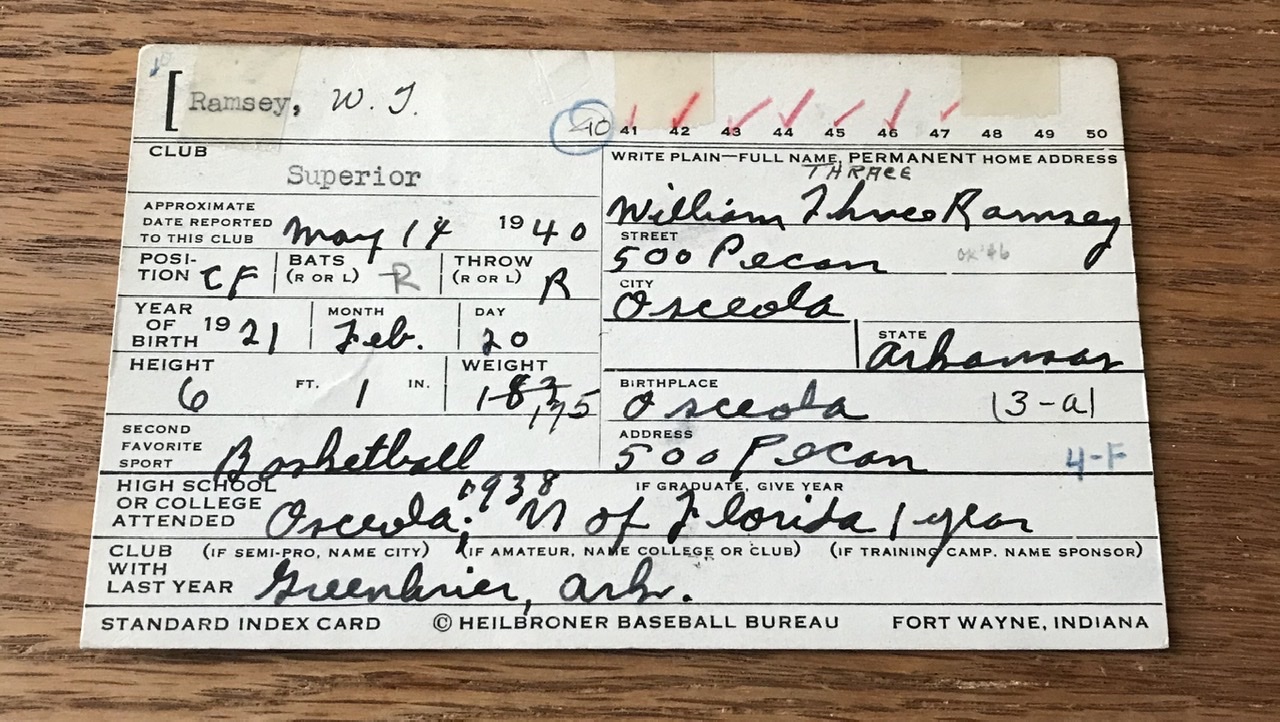 Ramsey, W. T.
40 41 42 43 44 45 46 47 48 49 50
CLUB
Superior
WRITE PLAIN—FULL NAME, PERMANENT HOME ADDRESS
THRACE
William Thrace Ramsey
APPROXIMATE DATE REPORTED TO THIS CLUB May 14 1940
STREET 500 Pecan OK '46
POSITION CF BATS (R OR L) R THROW (R OR L) R
CITY Osceola
YEAR OF BIRTH 1921 MONTH Feb. DAY 20
STATE Arkansas
HEIGHT 6 FT. 1 IN. WEIGHT 183 175
BIRTHPLACE Osceola 3-a
SECOND FAVORITE SPORT Basketball
ADDRESS 500 Pecan 4-F
HIGH SCHOOL OR COLLEGE ATTENDED Osceola; 1938 U of Florida 1 year
IF GRADUATE, GIVE YEAR
CLUB WITH LAST YEAR (IF SEMI-PRO, NAME CITY) (IF AMATEUR, NAME COLLEGE OR CLUB) (IF TRAINING CAMP, NAME SPONSOR)
Greenbrier, Ark.
STANDARD INDEX CARD © HEILBRONER BASEBALL BUREAU FORT WAYNE, INDIANA